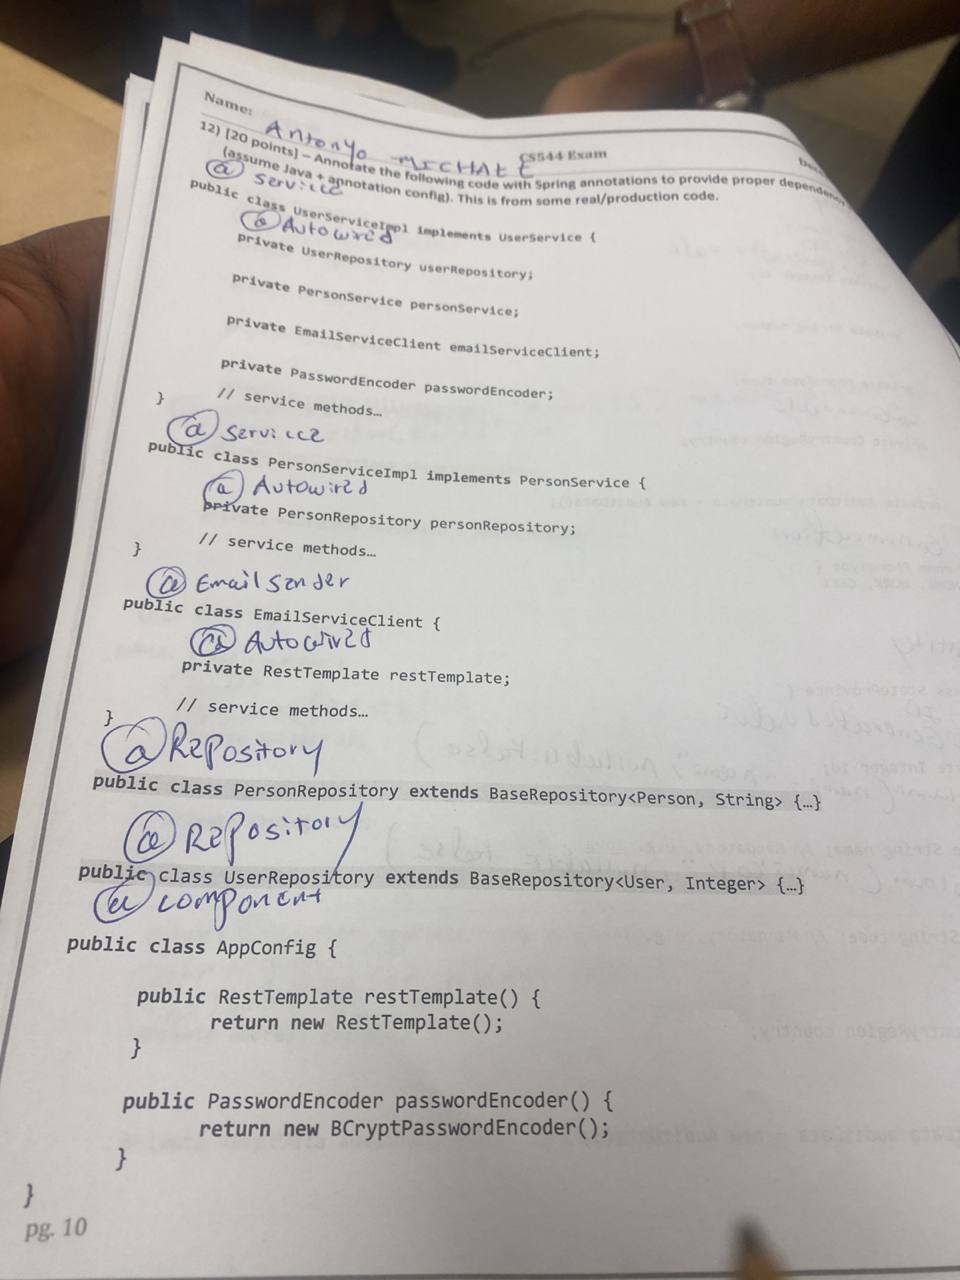 Name: Antonyo MICHAEL
CS544 Exam
12) [20 points] – Annotate the following code with Spring annotations to provide proper dependency
(assume Java + annotation config). This is from some real/production code.
@ Service
public class UserServiceImpl implements UserService {
@ Autowired
private UserRepository userRepository;
private PersonService personService;
private EmailServiceClient emailServiceClient;
private PasswordEncoder passwordEncoder;
// service methods…
}
@ Service
public class PersonServiceImpl implements PersonService {
@ Autowired
private PersonRepository personRepository;
// service methods…
}
@ Email sender
public class EmailServiceClient {
@ Autowired
private RestTemplate restTemplate;
// service methods…
}
@ Repository
public class PersonRepository extends BaseRepository<Person, String> {…}
@ Repository
public class UserRepository extends BaseRepository<User, Integer> {…}
@ component
public class AppConfig {
public RestTemplate restTemplate() {
return new RestTemplate();
}
public PasswordEncoder passwordEncoder() {
return new BCryptPasswordEncoder();
}
}
pg. 10